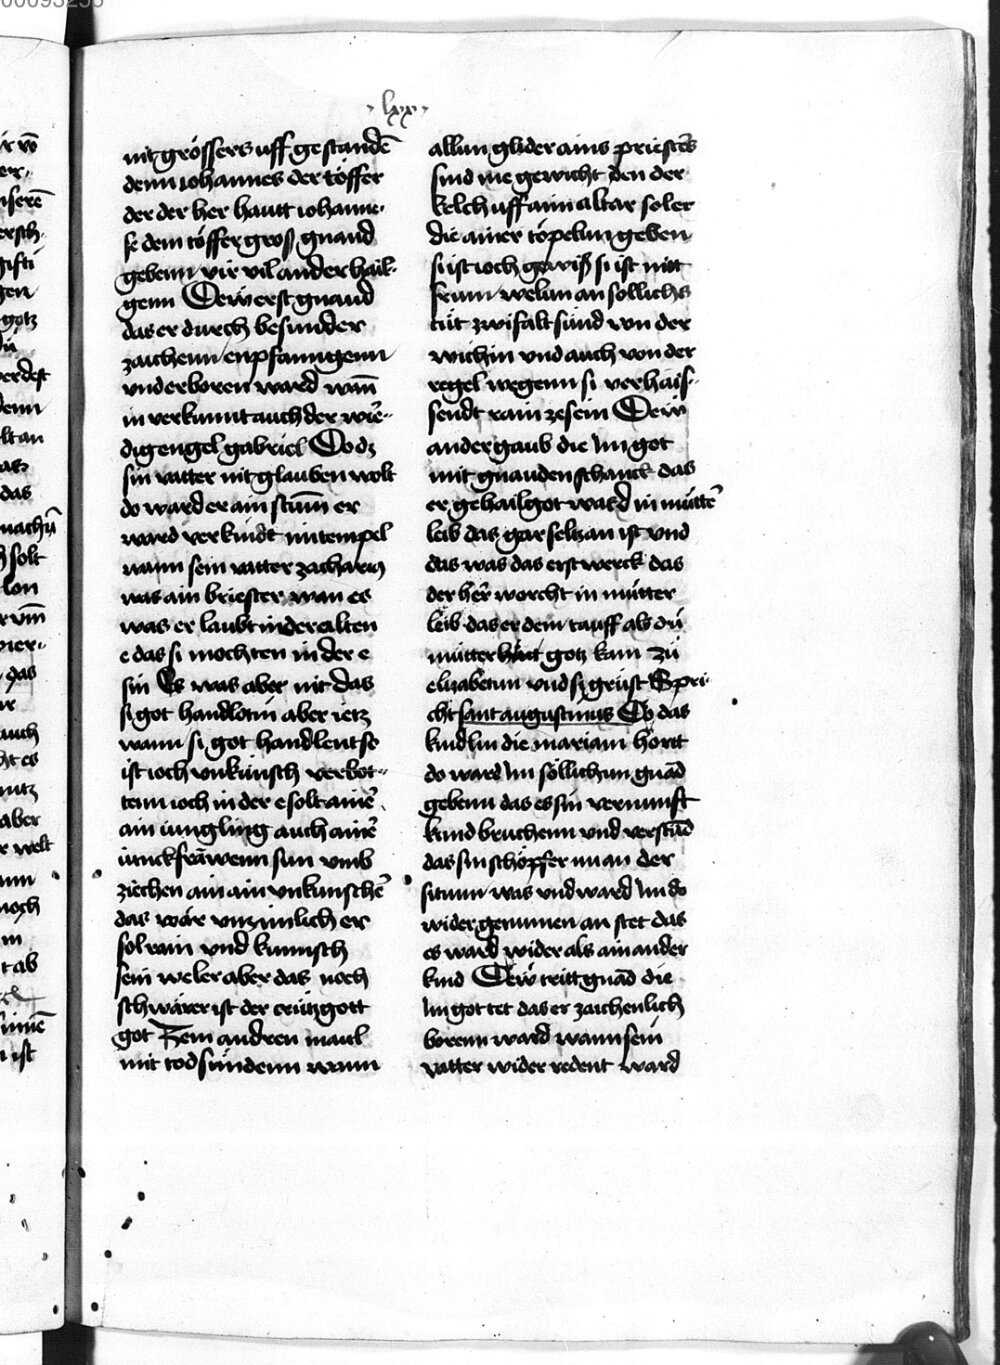 00093255
· lxx ·
nit grössers uff gestandē
denn iohannes der töffer
der der her hautt iohanne·
se dem töffer groß gnaud
gebenn vür vil ander hail·
genn Dew erst gnaud
das er durch besunder
zaichenn enpfanngenn
vnder boren ward wañ
in verkunnt auch der wir··
dig engel gabriel Do dz
sin vatter nit glauben wolt
do ward er ain stum̄ er
ward verkündt im tempel
wann sein vatter zacharias
was ain briester wan es
was er laubt in der alten
e das si mochten in der e
sin Es was aber nit das
si got handlotin aber ietz
wann si got handlent so
ist ioch vnkünsch verbot··
tenn ioch in der e solt ainē
ain iungling auch ainē
iunckfrāwenn sun vmb
ziechen ain ain vnkunschē
das wär vnzimlich er
sol rain vnd kunnsch
sein weler aber das noch
schwärer ist der crützgott
got Zem andren maul
mit tod sündenn wann
allun glider ains priesters
sind me gewicht den der
kelch uff aim altar soler
die ainer töpelun geben
si ist ioch gewiß si ist nitt
frum welun an sollichs
tüt zwifalt sünd von der
wichin vnd auch von der
regel wegenn si verhais·
sendt rain ze sein Dew
ander gaub die im got
mit gnauden schanck das
er gehailgot ward in mütter
leib das gar seltzan ist vnd
das was das erst werck das
der her worcht in mütter
leib das er dem tauff als dü
mütter gotz kam zü
elizabetun vnd si grüst Spri·
cht sant augustinus Do das
kindlin die mariam hortt
do ward im söllichun gnād
gebenn das es sin vernunft
kund bruchenn vnd verstūd
das sin schöpfer nun an der
stimm was vnd ward im do
wider genumen an stet das
es ward wider als ain ander
kind Dew tritt gnād die
im got tet das er zaichenlich
borenn ward wann sein
vatter wider redent ward